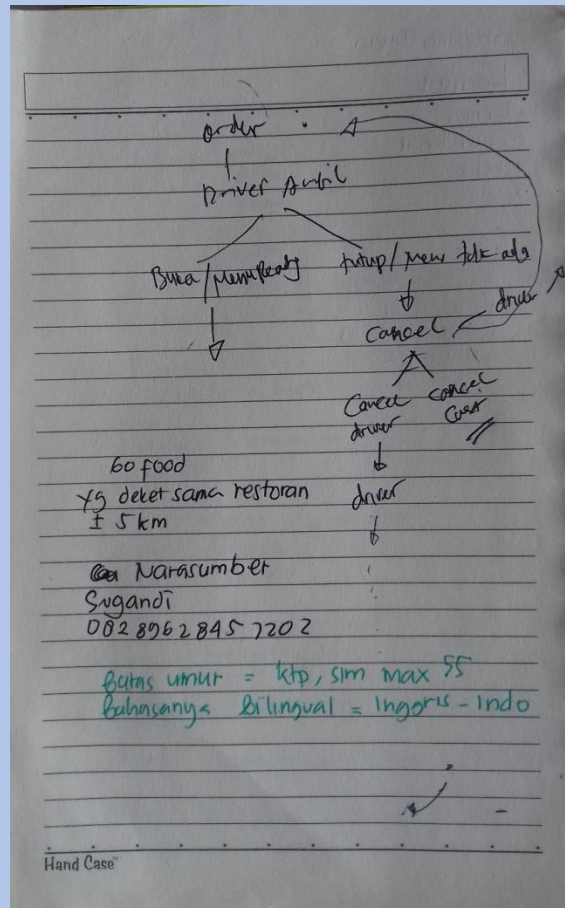 order
Driver Ambil
Buka/Menu Ready
tutup/Menu tdk ada
Cancel
driver
Cancel driver
Cancel Cust
driver
Go food
yg deket sama restoran
± 5 km
Narasumber
Sugandi
08289628457202
Batas umur = ktp, sim max 55
Bahasanya Bilingual = Inggris - Indo
Hand Case™